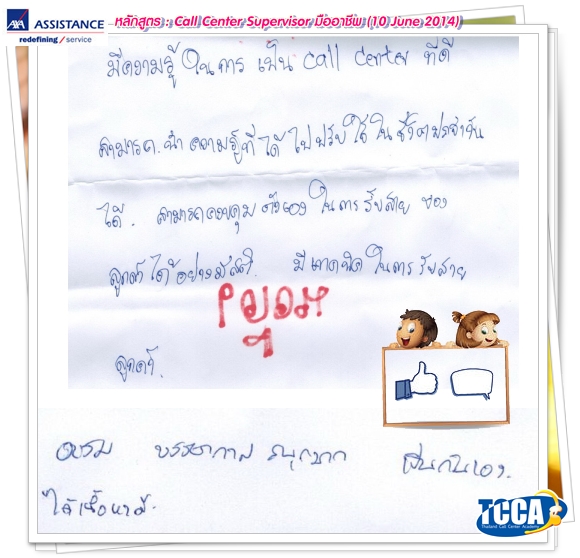 AXA ASSISTANCE
redefining / service
หลักสูตร : Call Center Supervisor มืออาชีพ (10 June 2014)
มีความรู้ในการ เป็น call center ที่ดี
สามารถนำความรู้ที่ได้ไปปรับใช้ในชีวิตประจำวัน
ได้. สามารถควบคุมตัวเองในการรับสาย ของ
ลูกค้าได้อย่างมีสติ. มีเทคนิคในการรับสาย
ลูกค้า.
อบรม บรรยากาศ สนุกมาก เป็นกันเอง.
ได้เนื้อหาดี.
TCCA
Thailand Call Center Academy